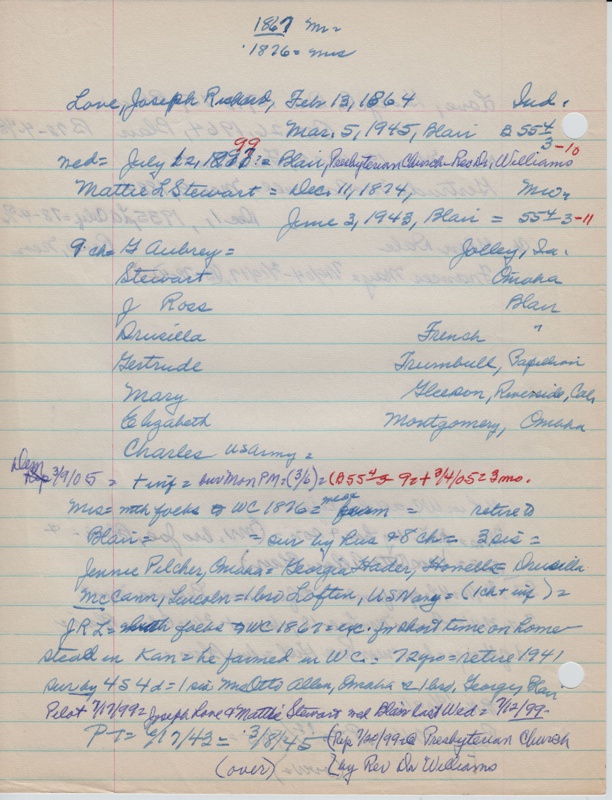 1867 Mr =
1876 = Mrs
Love, Joseph Richard, Feb 13, 1864 Ind.
Mar. 5, 1945, Blair B 55 4/3 -10
99
med = July 12, = Blair, Presbyterian Church - Rev Dr. Williams
Mattie L Stewart = Dec. 11, 1874, Mo.
June 3, 1943, Blair = 55 4-3 -11
9 ch = G Aubrey = Jolley, Ia.
Stewart Omaha
J Ross Blair
Drusilla French "
Gertrude Trumbull, Papillion
Mary Gleeson, Riverside, Cal.
Elizabeth Montgomery, Omaha
Charles US Army =
Dem 3/9/05 = + inf = bur Mon PM = (3/6) = (B 55 4 3 9 = + 3/4/05 = 3 mo.
Mrs = mth folks to WC 1876 = near = retire to
Blair = = sur by hus & 8 ch = 3 sis =
Jennie Pilcher, Omaha = Georgia Hader, Howells = Drusilla
McCann, Lincoln = 1 bro Loften, US Navy = (1 ch + inf) =
J.R.L = folks to WC 1867 = exc. for short time on home-
stead in Kan = he farmed in WC. = 72 yrs = retire 1941
sur by 4 s 4 d = 1 sis Mrs Otto Allen, Omaha & 1 bro, George, Blair
Pilot 7/19/99 = Joseph Love & Mattie Stewart med Blair last Wed = 7/12/99 -
PT = 6/17/43 = 3/8/45 (Rep 7/20/99 @ Presbyterian Church
(over) by Rev Dr Williams